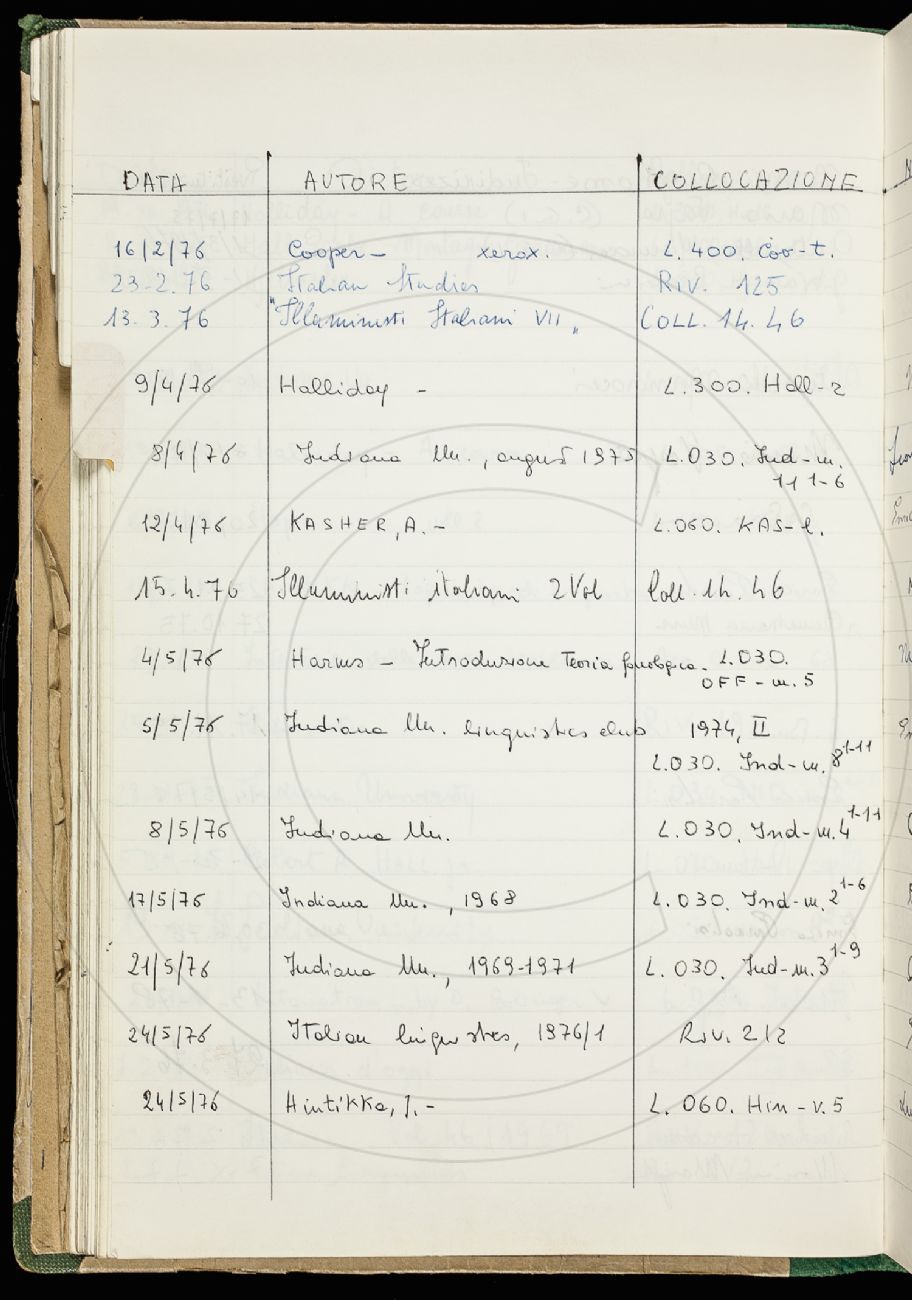 DATA AUTORE COLLOCAZIONE
16/2/76 Cooper - xerox. L. 400. Coo-t.
23-2.76 Italian Studies RIV. 125
13.3.76 "Illuministi Italiani VII" COLL. 14. 46
9/4/76 Halliday - L.300. Hall-2
8/4/76 Indiana Un., august 1975 L.030. Ind-m.
11 1-6
12/4/76 KASHER, A. - L.060. KAS-l.
15.4.76 Illuministi italiani 2 Vol Coll. 14. 46
4/5/76 Harms - Introduzione Teoria fonologica. L.030.
OFF - m. 5
5/5/76 Indiana Un. linguistics club 1974, II
L.030. Ind-m. 8 1-11
8/5/76 Indiana Un. L.030. Ind-m. 4 1-11
17/5/76 Indiana Un., 1968 L.030. Ind-m. 2 1-6
21/5/76 Indiana Un., 1969-1971 L. 030. Ind-m. 3 1-9
24/5/76 Italian linguistics, 1976/1 RIV. 212
24/5/76 Hintikka, J. - L. 060. Hin - v. 5